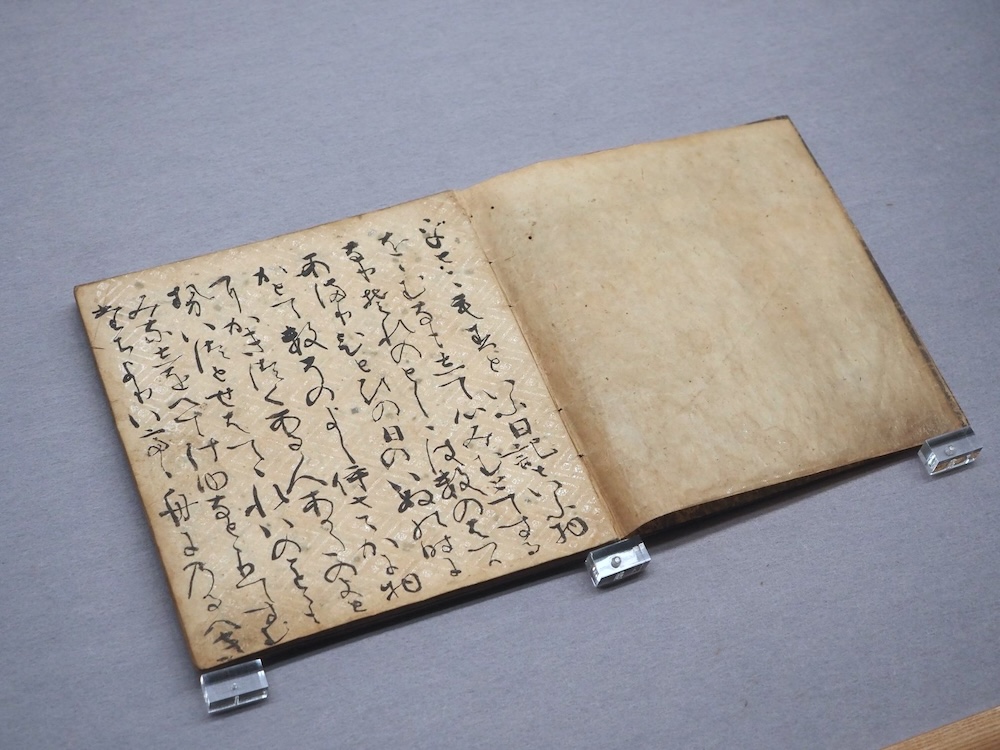 乎とこもすといふ日記といふ物
をゝむなもして心みむとてする
なりそれのとしゝはすのはつか
あまりひとひの日のいぬの時に
かとてすそのよしいさゝかに物
にかきつくある人あかたのよと
せいつとせはてゝれいのことゝも
みなしをへてけゆなととりてすむ
たちよりいてゝ舟にのるへき